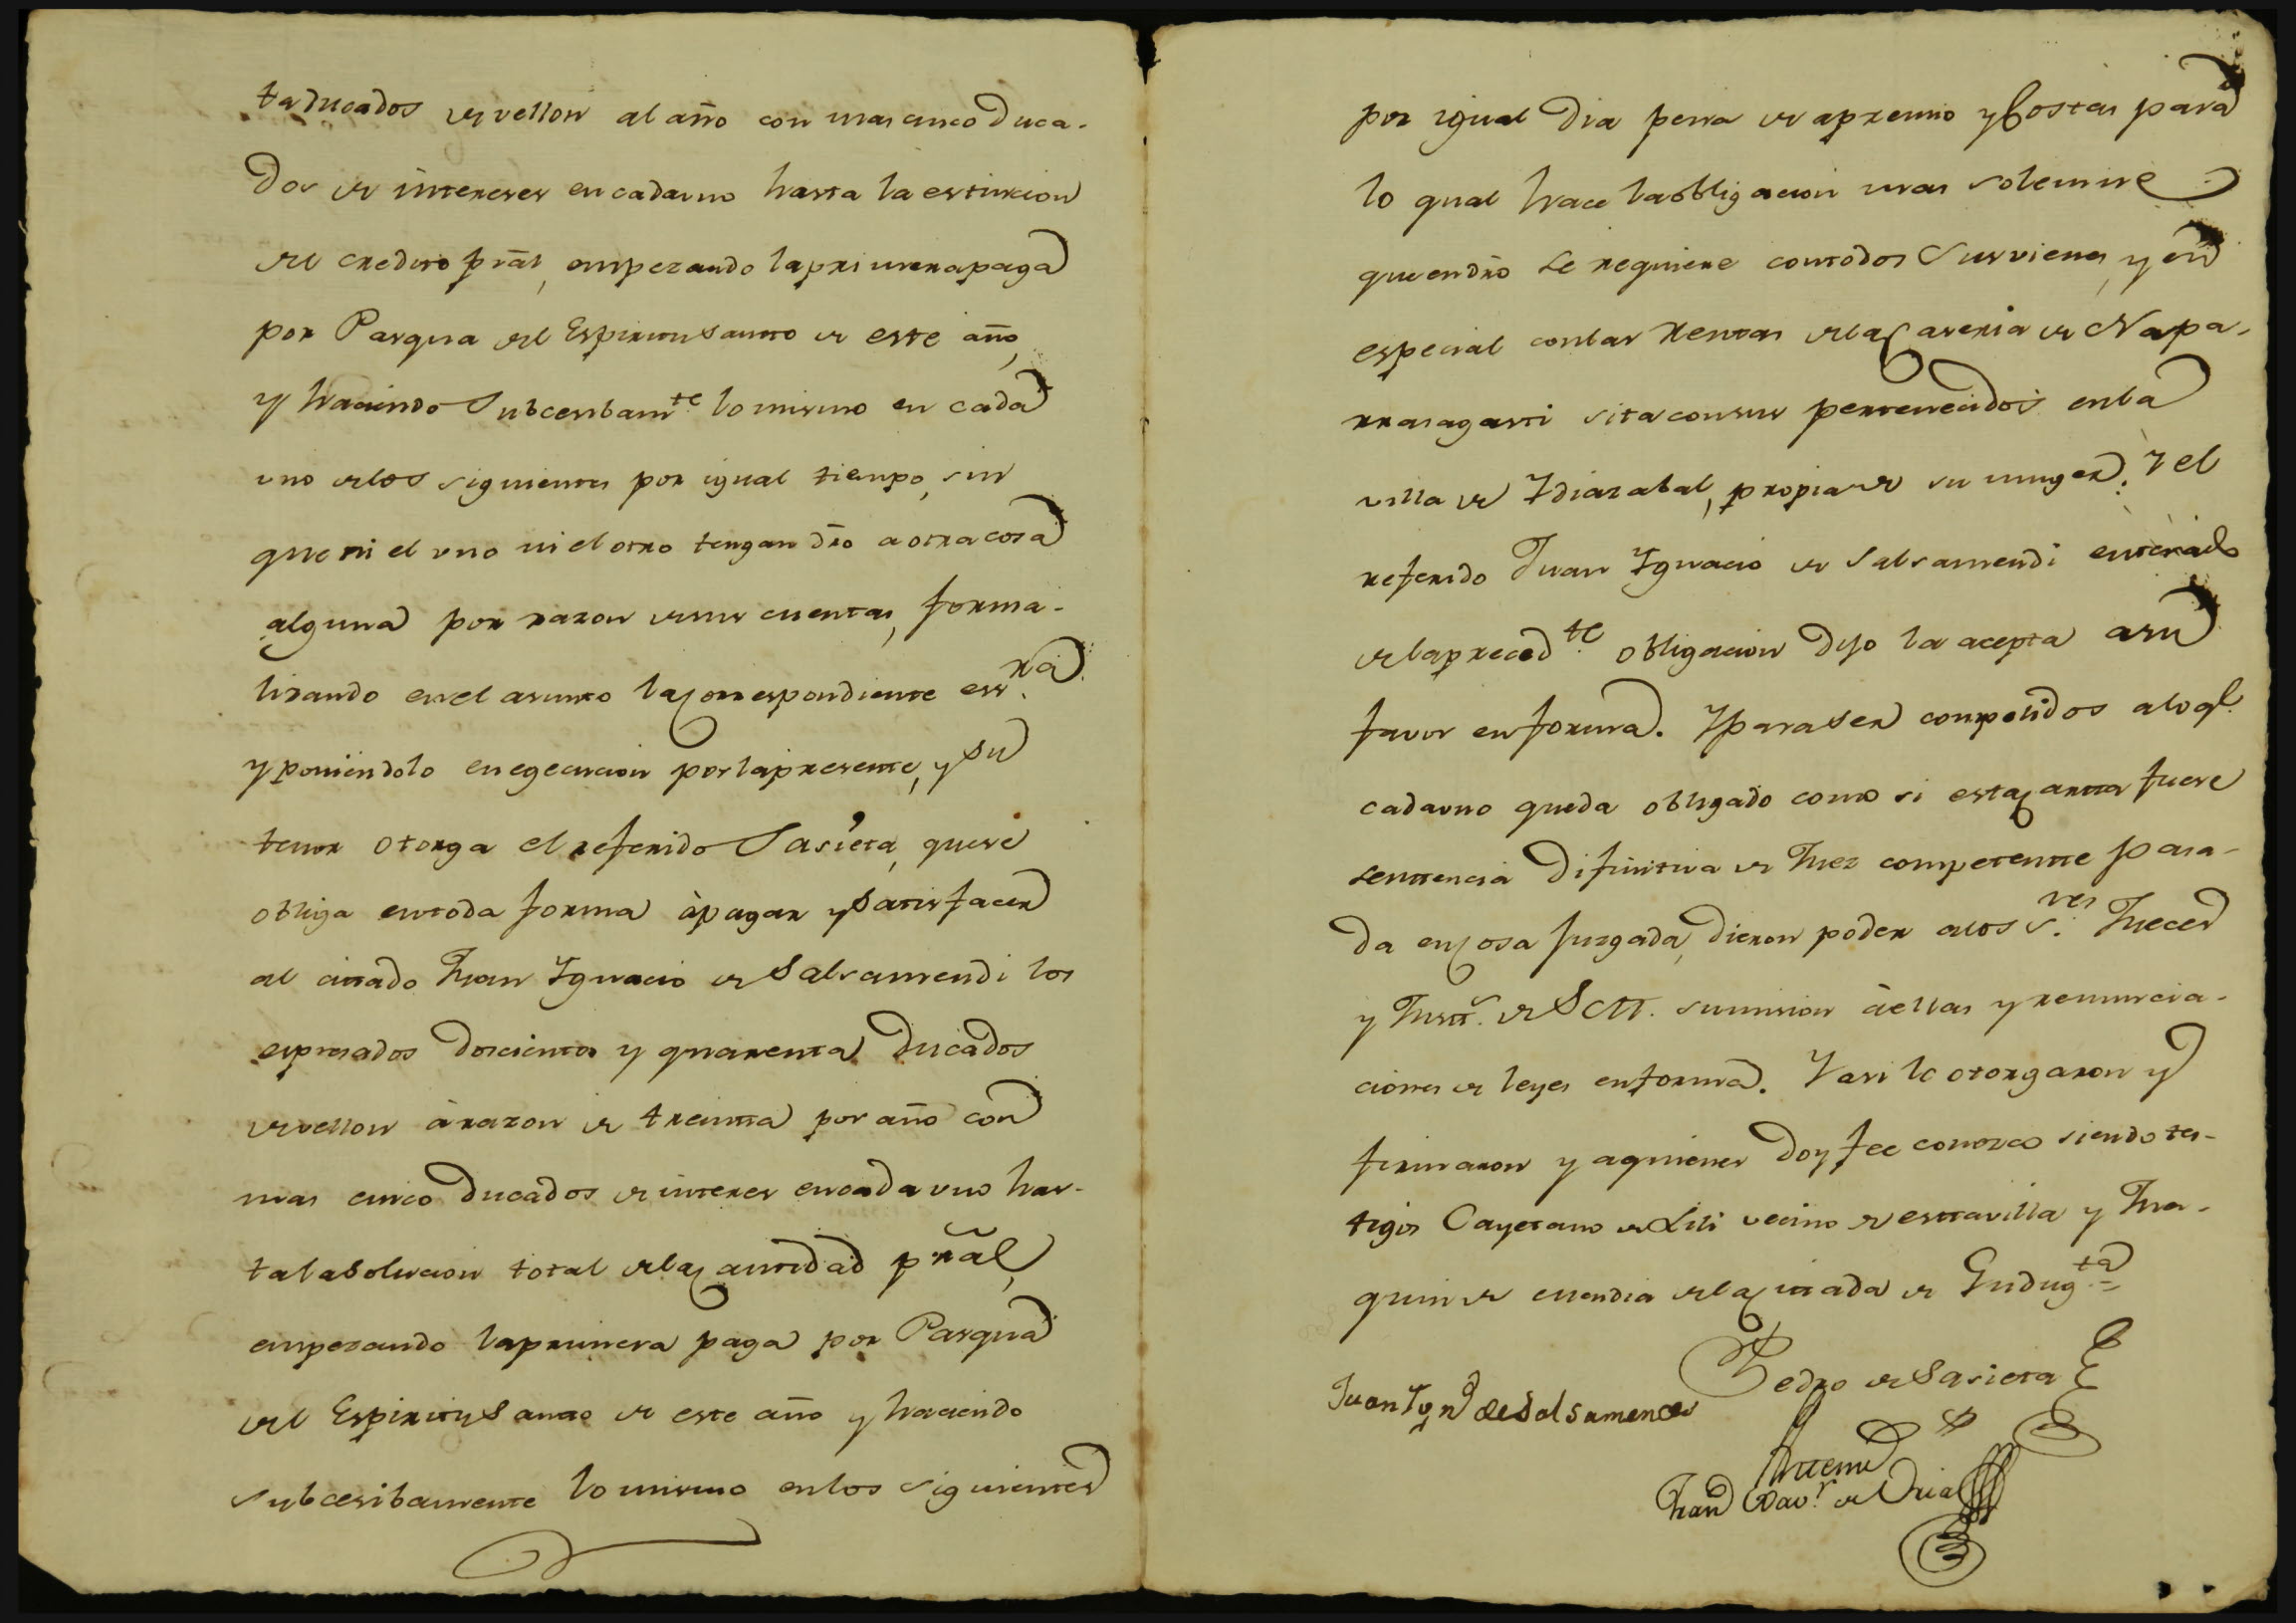 ta ducados de vellon al año con mas cinco duca-
dos de intereses en cada uno hasta la estincion
del credito prãl, empezando la primera paga
por Pasqua del Espiritu Santo de este año,
y haciendo Subcesibamte. lo mismo en cada
uno de los siguientes por igual tiempo, sin
que ni el uno ni el otro tengan dro a otra cosa
alguna por razon de sus cuentas, forma-
lizando en el asunto la correspondiente essra.
y poniendolo en egecucion por la presente, y su
tenor otorga el referido Sasieta, que se
obliga en toda forma à pagar y satisfacer
al citado Juan Ignacio de Salsamendi los
espresados doscientos y quarenta ducados
de vellon à razon de treinta por año con
mas cinco ducados de interes en cada uno has-
ta la solucion total de la cantidad prãl,
empezando la primera paga por Pasqua
del Espiritu Santo de este año y haciendo
subcesibamente lo mismo en los siguientes
por igual dia pena de apremio y Costas para
lo qual hace la obligacion mas solemne
que en dro se requiere con todos sus vienes, y en
especial con las rentas de la Caseria de Napa-
rrasagasti sita con sus pertenecidos en la
villa de Idiazabal, propia de su muger. Y el
referido Juan Ignacio de Salsamendi enterado
de la precedte. obligacion dijo la acepta a su
favor en forma. Y para ser compelidos a lo ql.
cada uno queda obligado como si esta carta fuese
sentencia difinitiva de Juez competente pasa-
da en cosa juzgada, dieron poder a los Sres. Jueces
y Justs. de S.M. sumision à ellas y renuncia-
ciones de leyes en forma. Y asi lo otorgaron y
firmaron y a quienes doy fee conozco siendo tes-
tigos Cayetano de Lili vecino de esta villa y Joa-
quin de elendia de la citada de Gudugta=
Pedro de Sasieta
Juan Ygn.º de Salsamendi
Antemi
Fran.co Xav.r de Oria